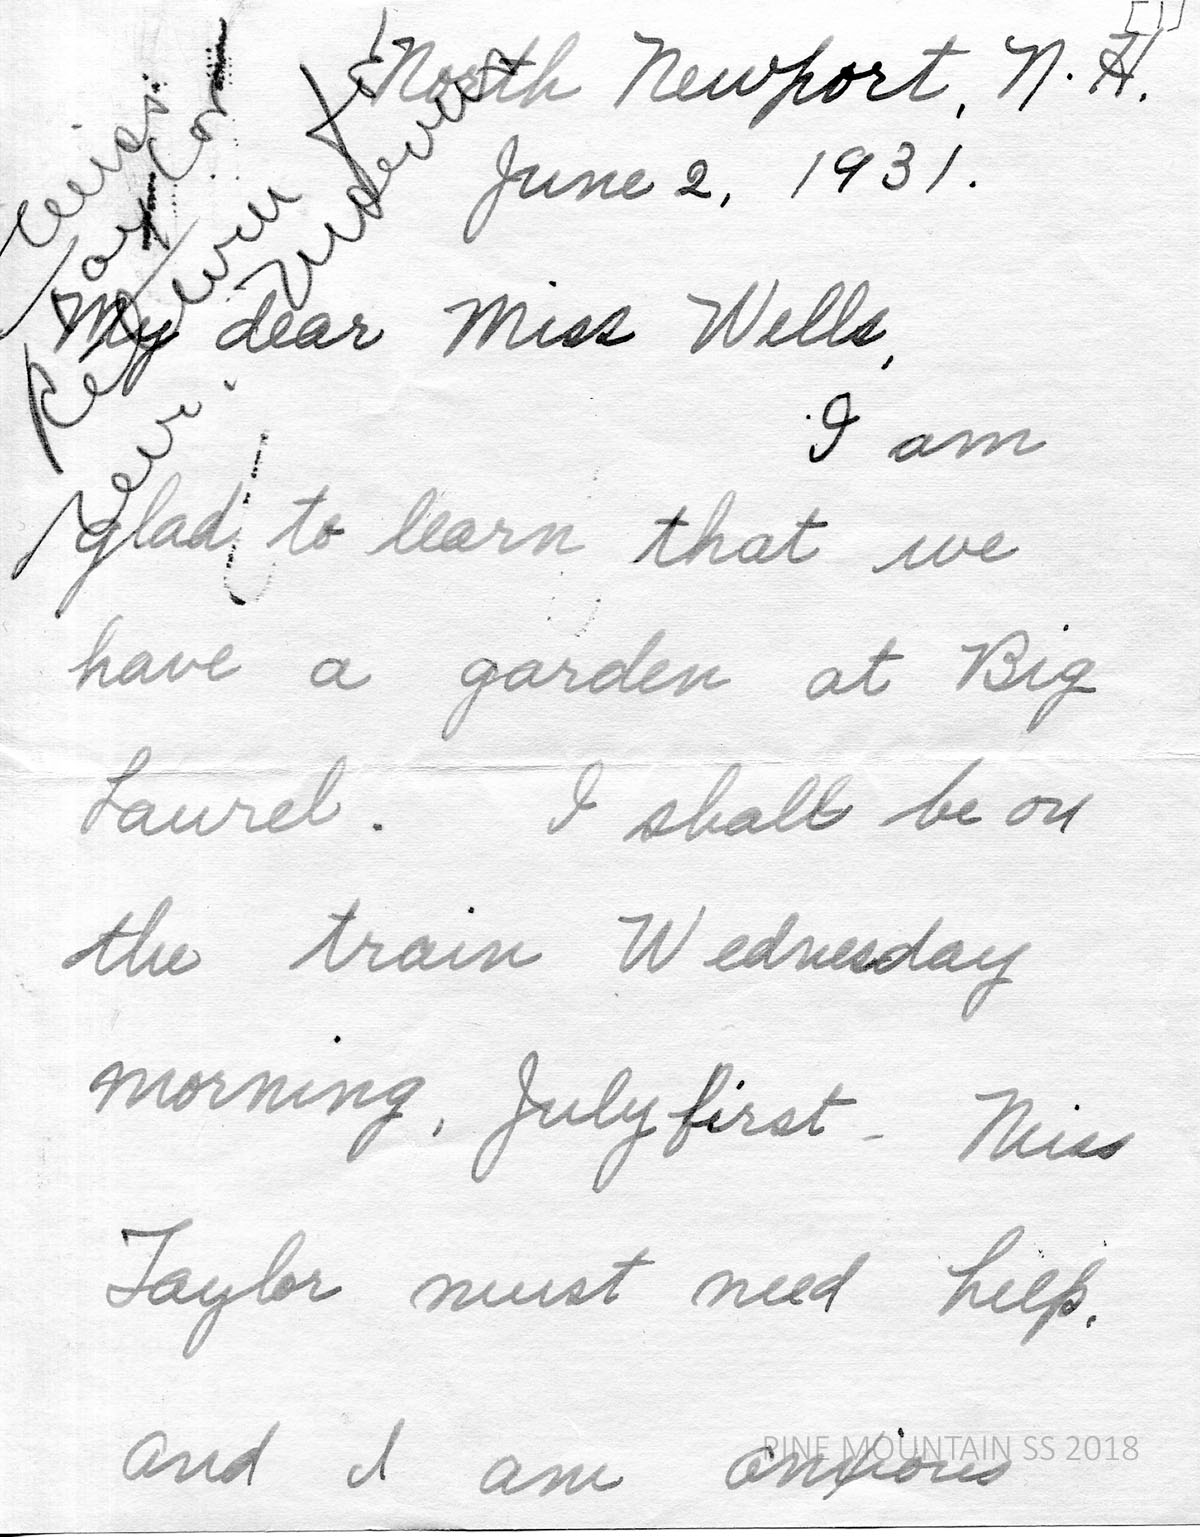 [1]
North Newport, N.H.
June 2, 1931.
Miss
Taylor
Return to
Wells.
My dear Miss Wells,
I am
glad to learn that we
have a garden at Big
Laurel. I shall be on
the train Wednesday
morning, July first - Miss
Taylor must need help.
and I am anxious
PINE MOUNTAIN SS 2018